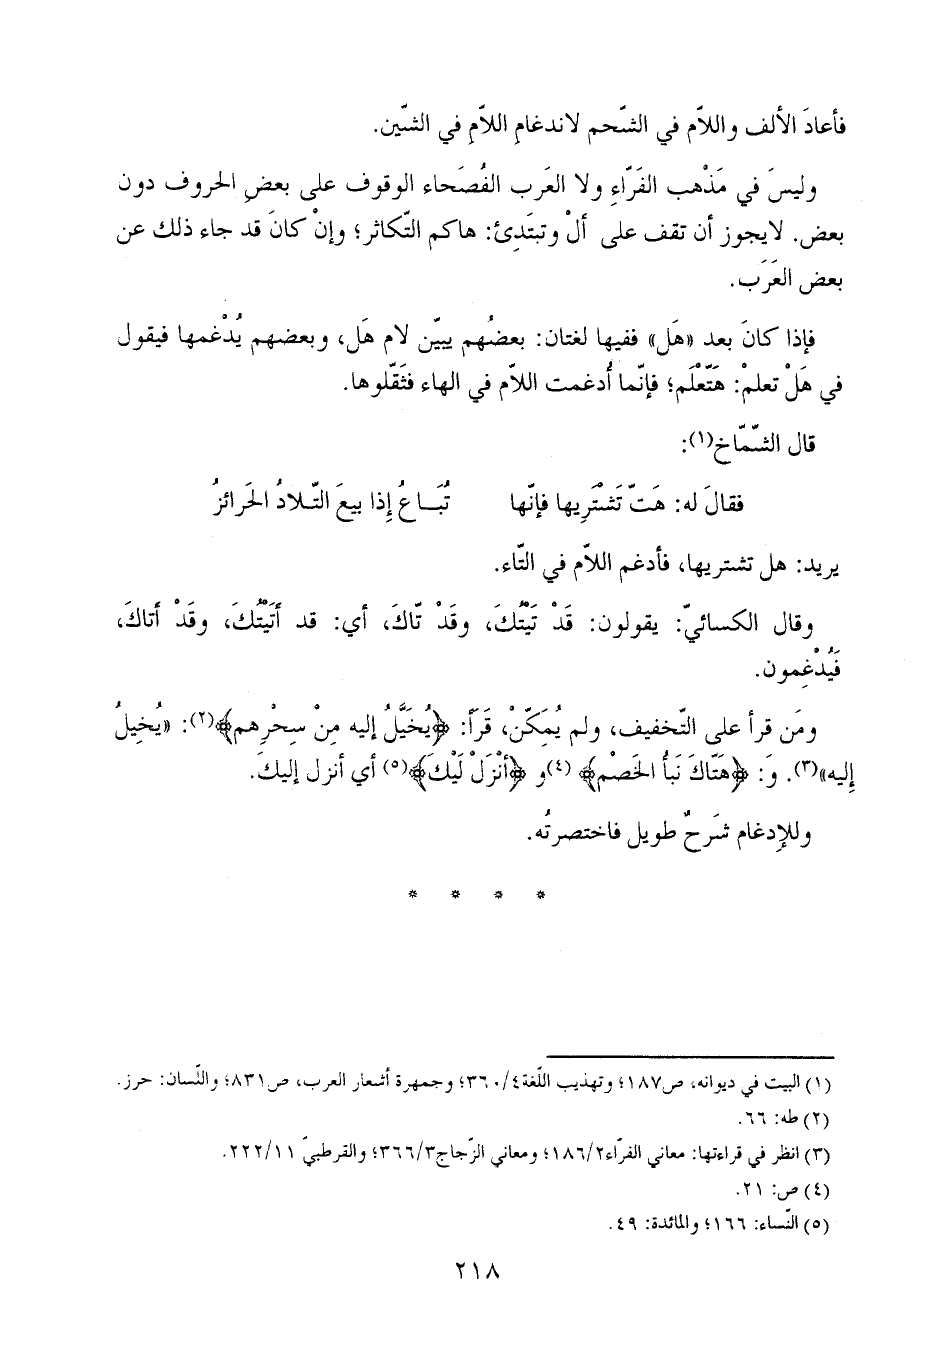 فأعادَ الألف واللاّم في الشّحم لاندغامِ اللاّمِ في الشّين.
وليسَ في مَذْهب الفَرّاءِ ولا العَرب الفُصَحاء الوقوف على بعضِ الحروف دون
بعض. لايجوز أن تقف على أَلْ وتبتَدِئ: هاكم التّكاثر؛ وإنْ كانَ قد جاء ذلك عن
بعض العَرَب.
فإذا كانَ بعد «هَل» ففيها لغتان: بعضُهم يبيّن لام هَل، وبعضهم يُدْغمها فيقول
في هَلْ تعلمْ: هَتَّعْلَم؛ فإنّما أُدغمت اللاّم في الهاء فثَقَّلوها.
قال الشّمّاخ(١):
فقالَ له: هَتّ تَشْتَرِيها فإنّها تُبَـاعُ إذا بيعَ التّـلادُ الحَرائزُ
يريد: هل تشتريها، فأدغم اللاّم في التّاء.
وقال الكسائيّ: يقولون: قَدْ تَيْتُكَ، وقَدْ تّاكَ، أي: قد أَتَيْتُكَ، وقَدْ أَتاكَ،
فَيُدْغِمون.
ومَن قرأ على التّخفيف، ولم يُمَكّنْ، قَرَأَ: ﴿يُخَيَّلُ إليه مِنْ سِحْرِهم﴾(٢): «يُخِيلُ
إِليه»(٣). وَ: ﴿هَتّاكَ نَبأُ الخَصْم﴾ (٤)و ﴿أنْزَلْ لَيْكَ﴾(٥) أي أنزل إليكَ.
وللإدغام شَرحٌ طويل فاختصرتُه.
* * * *
(١) البيت في ديوانه، ص١٨٧؛ وتهذيب اللّغة٣٦٠/٤؛ وجمهرة أشعار العرب، ص٨٣١؛ واللّسان: حرز.
(٢) طه: ٦٦.
(٣) انظر في قراءتها: معاني الفرّاء١٨٦/٢؛ ومعاني الزّجاج٣٦٦/٣؛ والقرطبيّ ٢٢٢/١١.
(٤) ص: ٢١.
(٥) النّساء: ١٦٦؛ والمائدة: ٤٩.
٢١٨